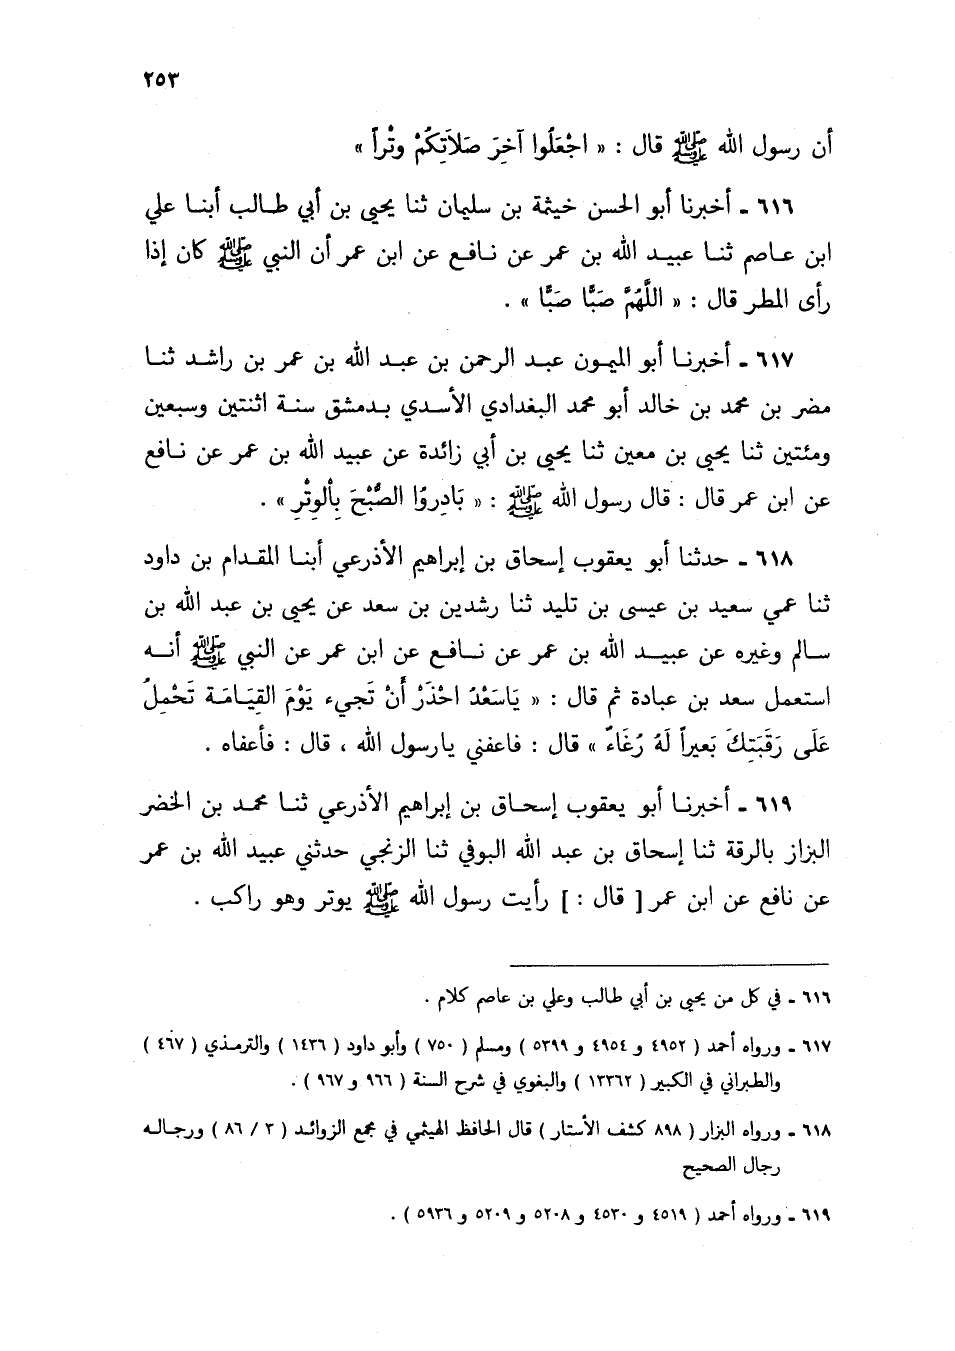 ٢٥٣
أن رسول الله ﷺ قال : « اجْعَلُوا آخِرَ صَلاَتِكُمْ وِتْراً »
٦١٦ ـ أخبرنا أبو الحسن خيثمة بن سليمان ثنا يحيى بن أبي طالب أبنا علي
ابن عاصم ثنا عبيد الله بن عمر عن نافع عن ابن عمر أن النبي ﷺ كان إذا
رأى المطر قال : « اللَّهُمَّ صَبًّا صَبًّا » .
٦١٧ ـ أخبرنا أبو الميمون عبد الرحمن بن عبد الله بن عمر بن راشد ثنا
مضر بن محمد بن خالد أبو محمد البغدادي الأسدي بدمشق سنة اثنتين وسبعين
ومئتين ثنا يحيى بن معين ثنا يحيى بن أبي زائدة عن عبيد الله بن عمر عن نافع
عن ابن عمر قال : قال رسول الله ﷺ : « بَادِرُوا الصُّبْحَ بِألْوِتْرِ » .
٦١٨ ـ حدثنا أبو يعقوب إسحاق بن إبراهيم الأذرعي أبنا المقدام بن داود
ثنا عمي سعيد بن عيسى بن تليد ثنا رشدين بن سعد عن يحيى بن عبد الله بن
سالم وغيره عن عبيد الله بن عمر عن نافع عن ابن عمر عن النبي ﷺ أنه
استعمل سعد بن عبادة ثم قال : « يَاسَعْدُ احْذَرْ أَنْ تَجيء يَوْمَ القِيَامَة تَحْمِلُ
عَلَى رَقَبَتِكَ بَعيراً لَهُ رُغَاءٌ » قال : فاعفني يارسول الله ، قال : فأعفاه .
٦١٩ ـ أخبرنا أبو يعقوب إسحاق بن إبراهيم الأذرعي ثنا محمد بن الخضر
البزاز بالرقة ثنا إسحاق بن عبد الله البوفي ثنا الزنجي حدثني عبيد الله بن عمر
عن نافع عن ابن عمر [ قال : ] رأيت رسول الله ﷺ يوتر وهو راكب .
٦١٦ ـ في كل من يحيى بن أبي طالب وعلي بن عاصم كلام .
٦١٧ ـ ورواه أحمد ( ٤٩٥٢ و ٤٩٥٤ و ٥٣٩٩ ) ومسلم ( ٧٥٠ ) وأبو داود ( ١٤٣٦ ) والترمذي ( ٤٦٧ )
والطبراني في الكبير ( ١٣٣٦٢ ) والبغوي في شرح السنة ( ٩٦٦ و ٩٦٧ ) .
٦١٨ ـ ورواه البزار ( ٨٩٨ كشف الأستار ) قال الحافظ الهيثمي في مجمع الزوائد ( ٣ / ٨٦ ) ورجاله
رجال الصحيح
٦١٩ ـ ورواه أحمد ( ٤٥١٩ و ٤٥٣٠ و ٥٢٠٨ و ٥٢٠٩ و ٥٩٣٦ ) .